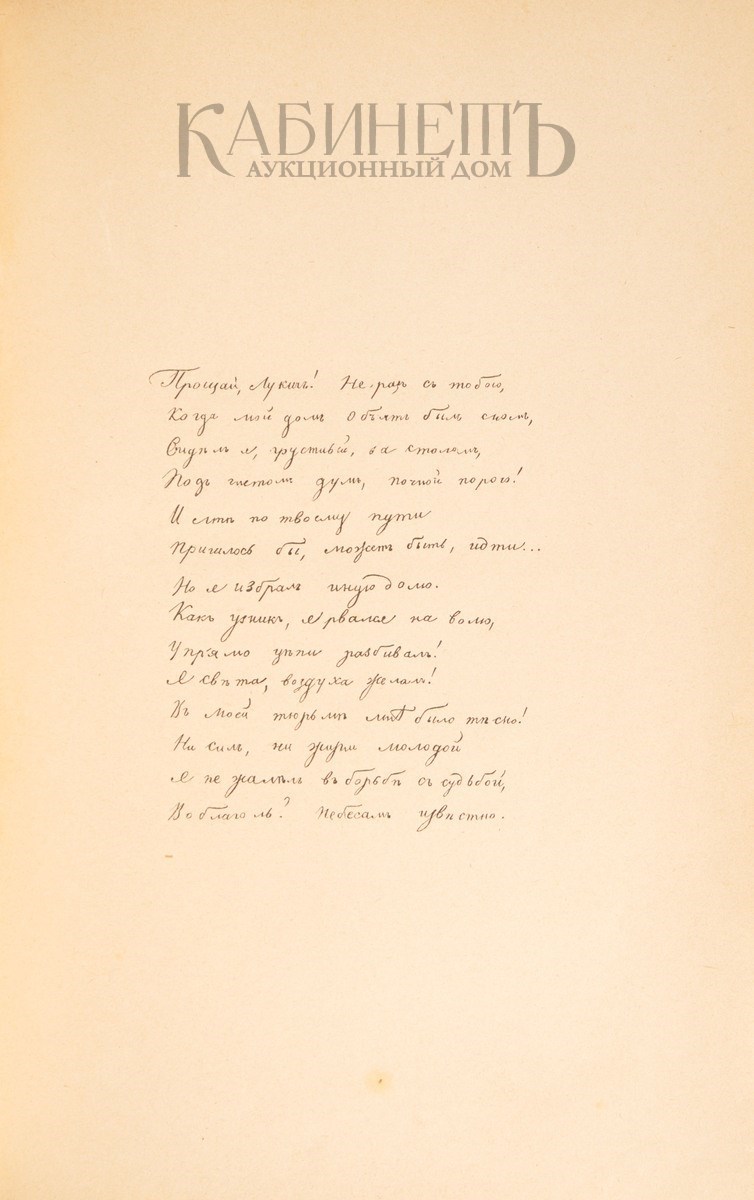 КАБИНЕТЪ
АУКЦИОННЫЙ ДОМ
Прощай, Лукичъ! Не разъ съ тобою,
Когда мой домъ объятъ былъ сномъ,
Сидѣлъ я, грустный, за столомъ,
Подъ гнетомъ думъ, ночной порою!
И мнѣ по твоему пути
Пришлось бы, можетъ быть, идти...
Но я избралъ иную долю.
Какъ узникъ, я рвался на волю,
Упрямо цѣпи разбивалъ!
Я свѣта, воздуха желалъ!
Въ моей тюрьмѣ мнѣ было тѣсно!
Ни силъ, ни жизни молодой
Я не жалѣлъ въ борьбѣ съ судьбой,
Во благо ль? Небесамъ извѣстно.